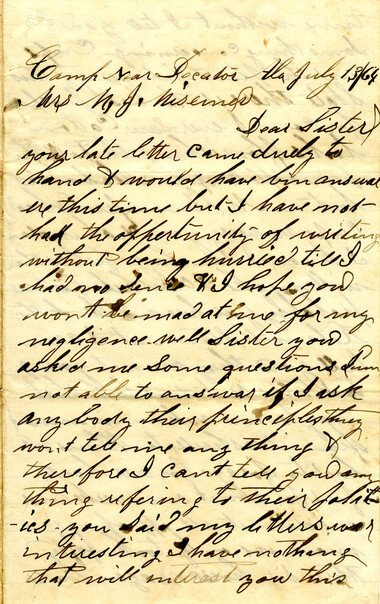 Camp Near Decator Ala July 13/64
Mrs M. J. Wisemod
Dear Sister
your late letter came duely to
hand & would have bin answar
ere this time but I have not
had the oppertunity of writing
without being hurried till I
had no sence & I hope you
wont be mad at me for my
negligence. well Sister you
asked me some questions I am
not able to answar if I ask
any body their principls they
wont tell me any thing &
therefore I cant tell you any
thing refering to their polit
-ics - you said my letters war
interesting I have nothing
that will interest you this